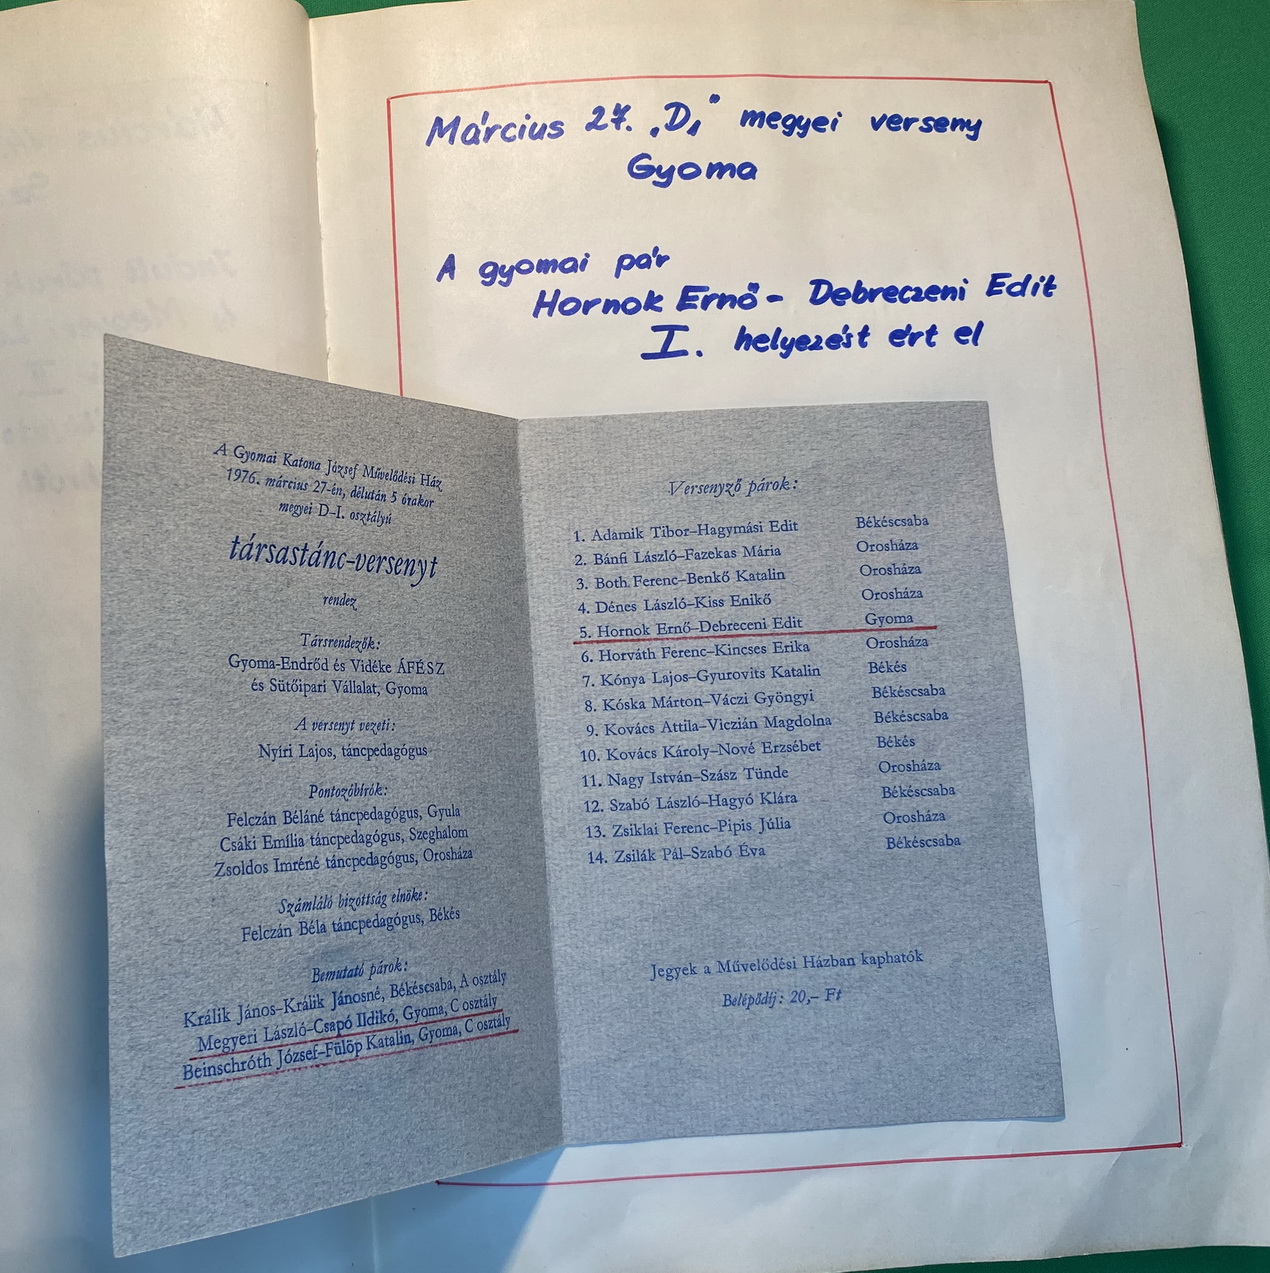 Március 27. „D₁" megyei verseny
Gyoma
A gyomai pár
Hornok Ernő - Debreczeni Edit
I. helyezést ért el
A Gyomai Katona József Művelődési Ház
1976. március 27-én, délután 5 órakor
megyei D-I. osztályú
társastánc-versenyt
rendez
Társrendezők:
Gyoma-Endrőd és Vidéke ÁFÉSZ
és Sütőipari Vállalat, Gyoma
A versenyt vezeti:
Nyíri Lajos, táncpedagógus
Pontozóbírók:
Felczán Béláné táncpedagógus, Gyula
Csáki Emília táncpedagógus, Szeghalom
Zsoldos Imréné táncpedagógus, Orosháza
Számláló bizottság elnöke:
Felczán Béla táncpedagógus, Békés
Bemutató párok:
Králik János–Králik Jánosné, Békéscsaba, A osztály
Megyeri László–Csapó Ildikó, Gyoma, C osztály
Beinschróth József–Fülöp Katalin, Gyoma, C osztály
Versenyző párok:
1. Adamik Tibor–Hagymási Edit Békéscsaba
2. Bánfi László–Fazekas Mária Orosháza
3. Both Ferenc–Benkő Katalin Orosháza
4. Dénes László–Kiss Enikő Orosháza
5. Hornok Ernő–Debreceni Edit Gyoma
6. Horváth Ferenc–Kincses Erika Orosháza
7. Kónya Lajos–Gyurovits Katalin Békés
8. Kóska Márton–Váczi Gyöngyi Békéscsaba
9. Kovács Attila–Viczián Magdolna Békéscsaba
10. Kovács Károly–Nové Erzsébet Békés
11. Nagy István–Szász Tünde Orosháza
12. Szabó László–Hagyó Klára Békéscsaba
13. Zsiklai Ferenc–Pipis Júlia Orosháza
14. Zsilák Pál–Szabó Éva Békéscsaba
Jegyek a Művelődési Házban kaphatók
Belépődíj: 20,– Ft